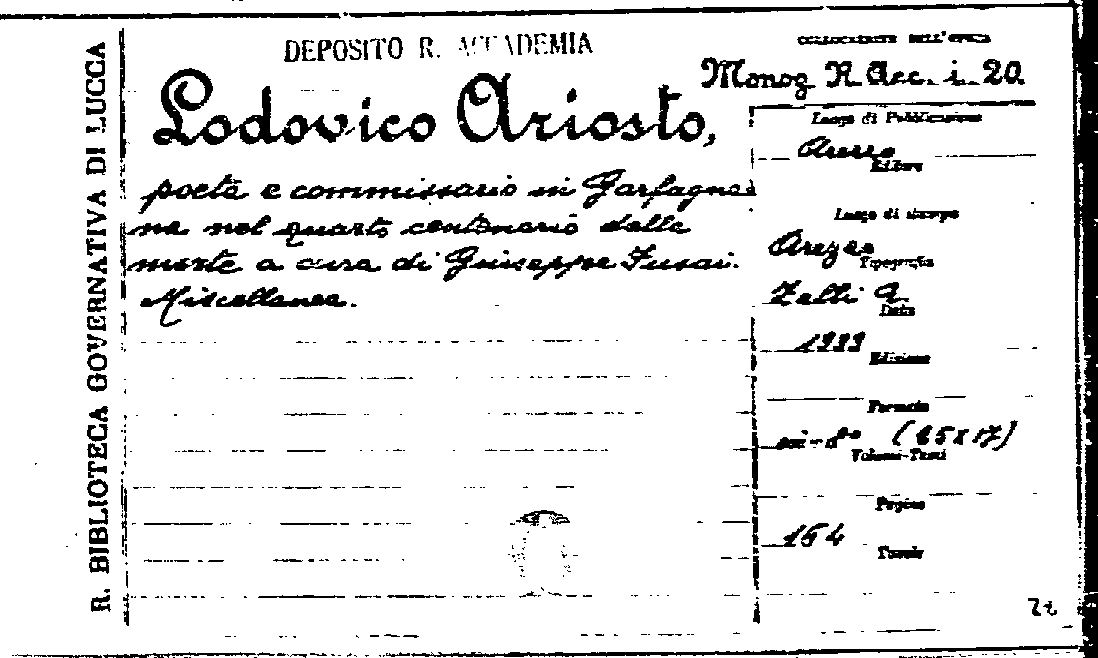 R. BIBLIOTECA GOVERNATIVA DI LUCCA
DEPOSITO R. ACCADEMIA
Lodovico Ariosto,
poeta e commissario in Garfagna=
na nel quarto centenario della
morte a cura di Giuseppe Fusai.
Miscellanea.
COLLOCAZIONE DELL'OPERA
Monog R. Acc. i. 20
Luogo di Pubblicazione
Arezzo
Editore
Luogo di stampa
Arezzo
Tipografia
Zelli A
Data
1933
Edizione
Formato
in-8°
(25x17)
Volumi-Tomi
Pagine
154
Tavole